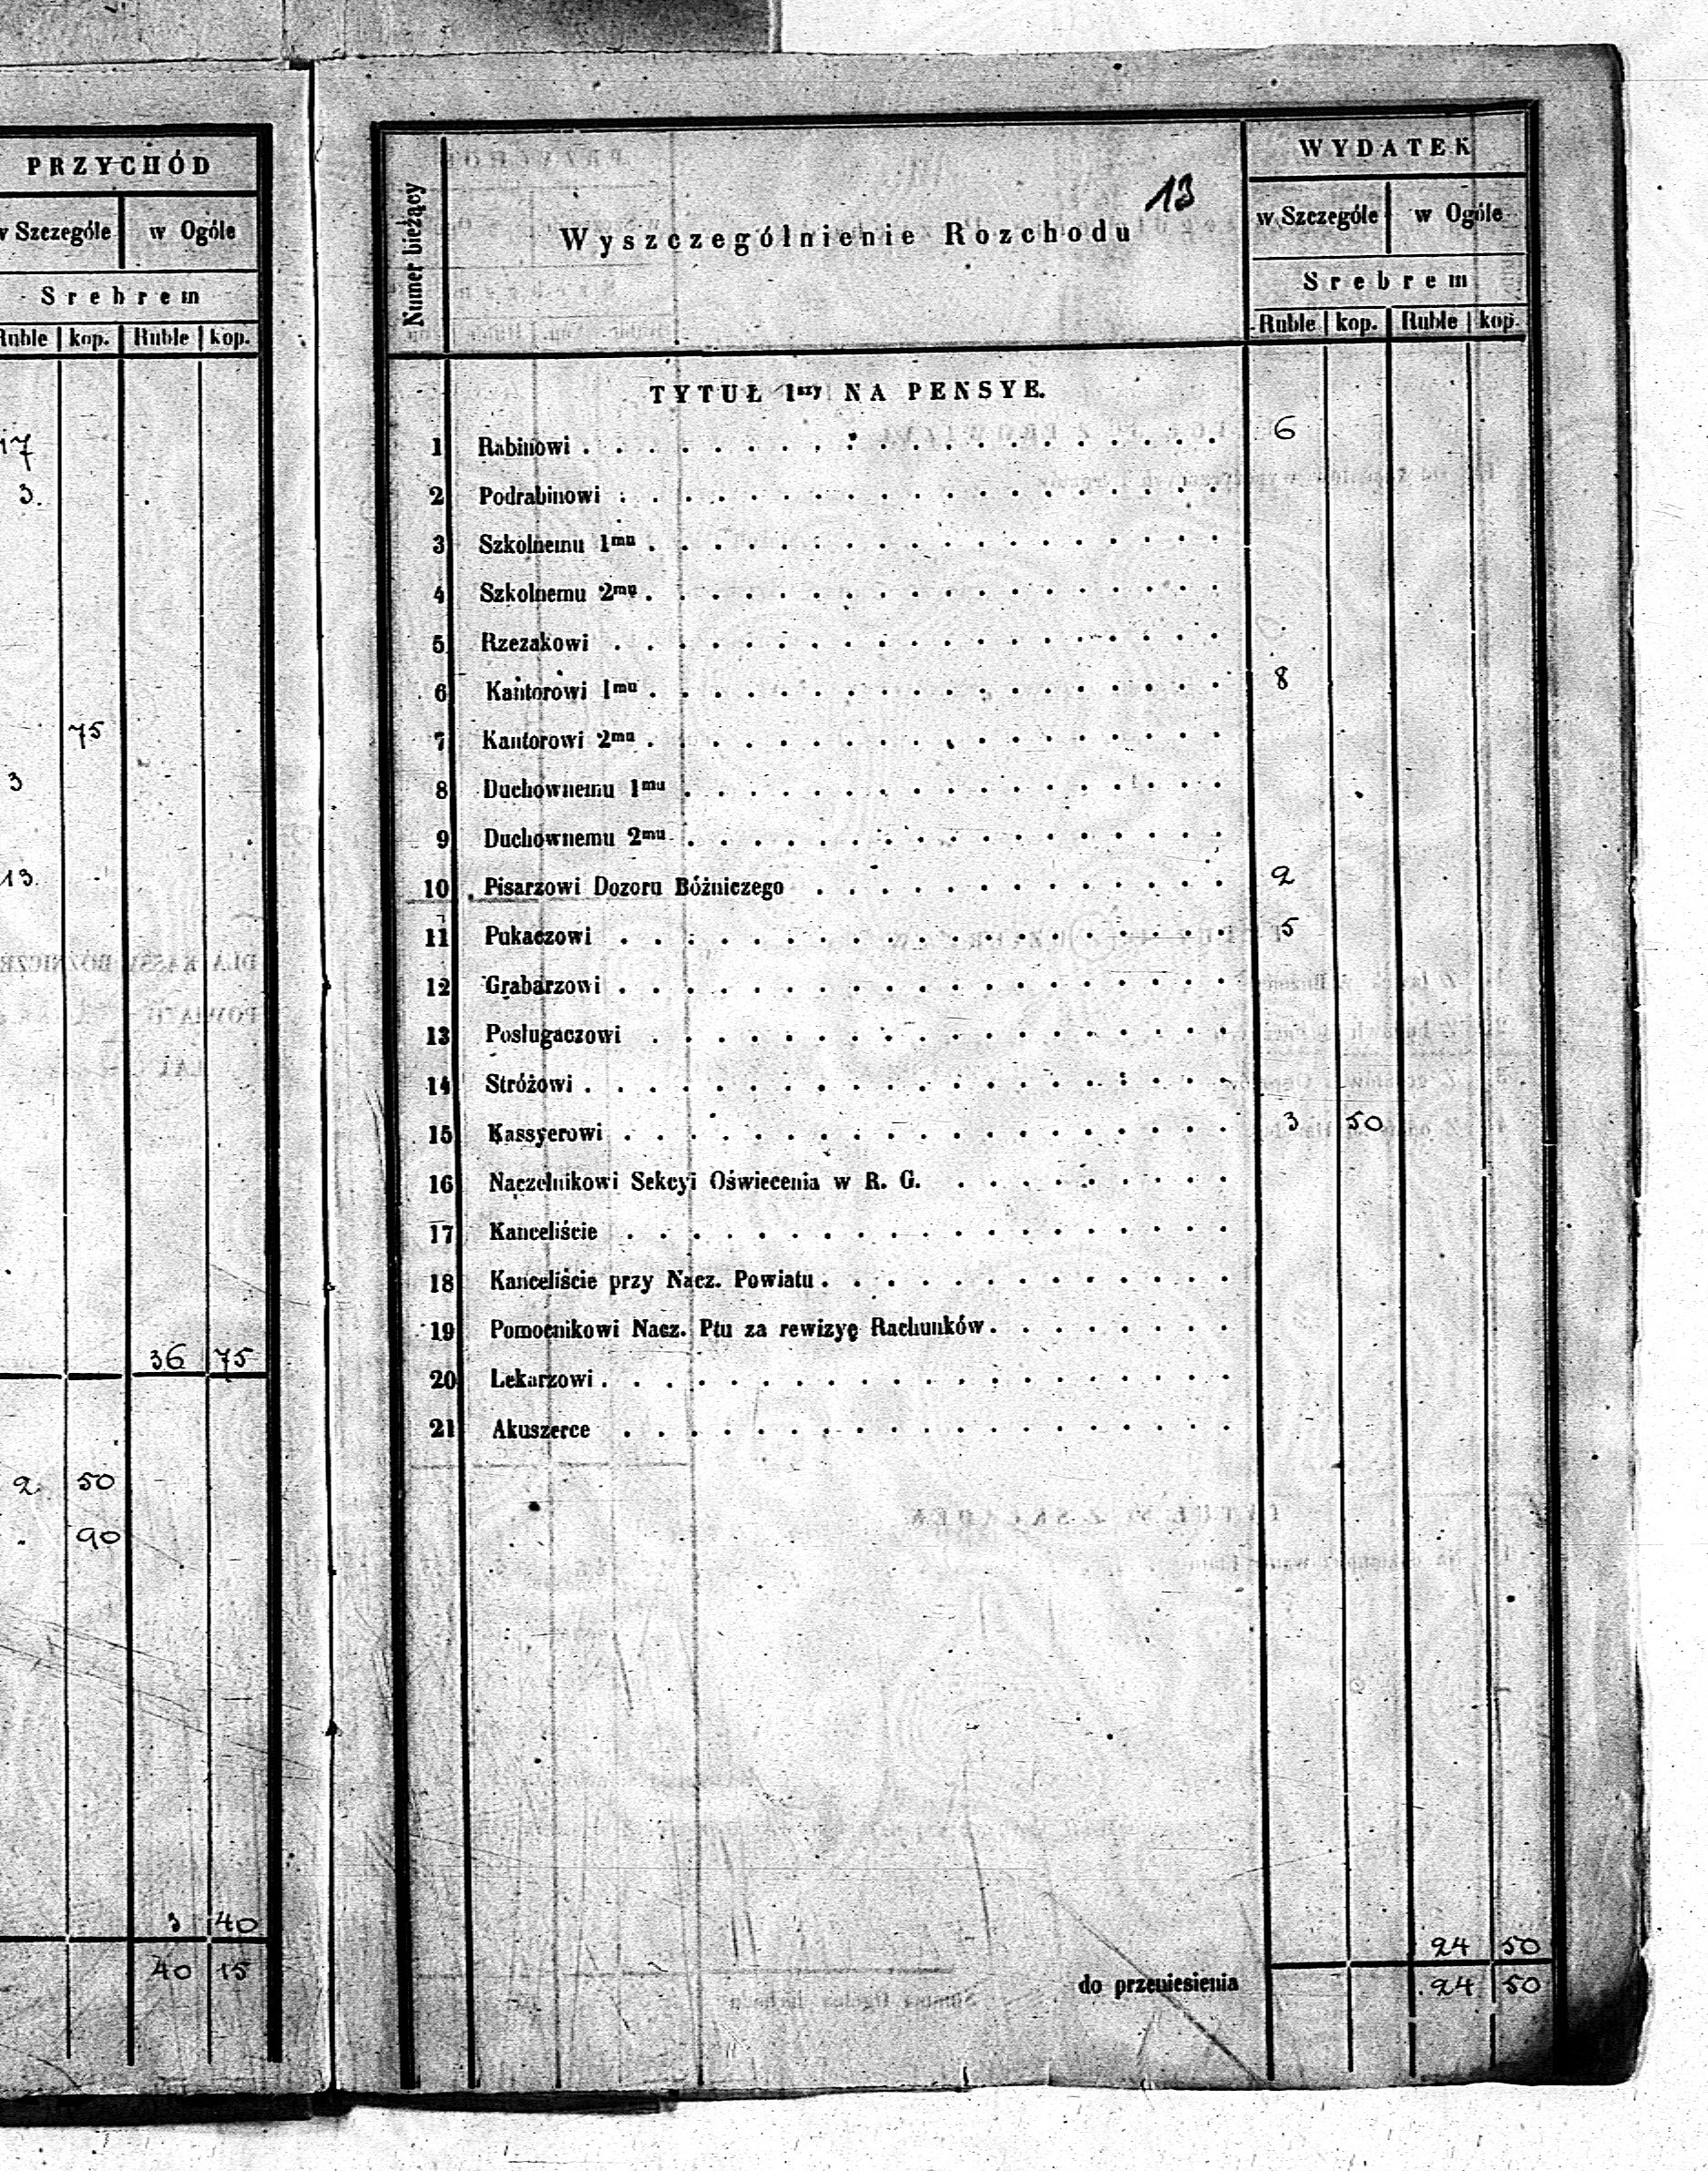 PRZYCHÓD
w Szczególe w Ogóle
Srebrem
Ruble kop. Ruble kop.
17
3.
75
3
13.
36 75
2 50
90
3 40
40 15
13
Numer bieżący
Wyszczególnienie Rozchodu
WYDATEK
w Szczególe w Ogóle
Srebrem
Ruble kop. Ruble kop.
TYTUŁ 1szy NA PENSYE.
1 Rabinowi . . . . . . 6
2 Podrabinowi . . . . . .
3 Szkolnemu 1mu . . . . . .
4 Szkolnemu 2mu . . . . . .
5 Rzezakowi . . . . . .
6 Kantorowi 1mu . . . . . . 8
7 Kantorowi 2mu . . . . . .
8 Duchownemu 1mu . . . . . .
9 Duchownemu 2mu . . . . . .
10 Pisarzowi Dozoru Bóżniczego . . . . . . 2
11 Pukaczowi . . . . . . 5
12 Grabarzowi . . . . . .
13 Posługaczowi . . . . . .
14 Stróżowi . . . . . .
15 Kassyerowi . . . . . . 3 50
16 Naczelnikowi Sekcyi Oświecenia w R. G. . . . . . .
17 Kanceliście . . . . . .
18 Kanceliście przy Nacz. Powiatu . . . . . .
19 Pomocnikowi Nacz. Ptu za rewizyę Rachunków . . . . . .
20 Lekarzowi . . . . . .
21 Akuszerce . . . . . .
24 50
do przeniesienia 24 50